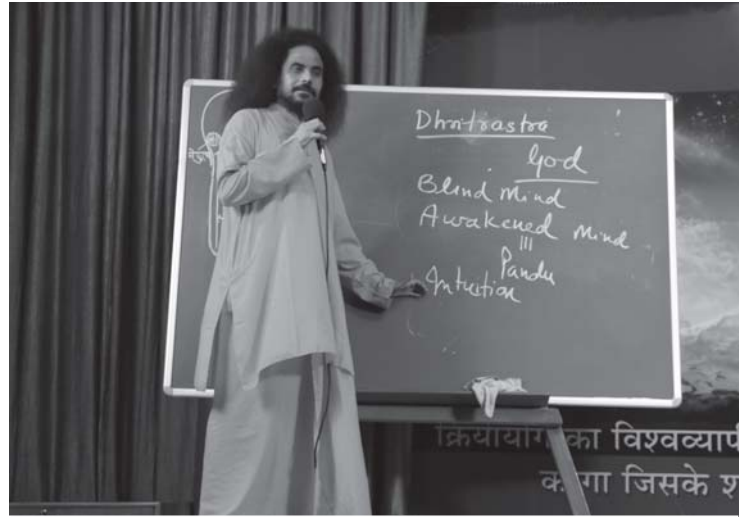 Dhritrastra
God
Blind Mind
Awakened Mind
Pandu
Intuition
क्रियायोग का विश्वव्यापी
जिसके